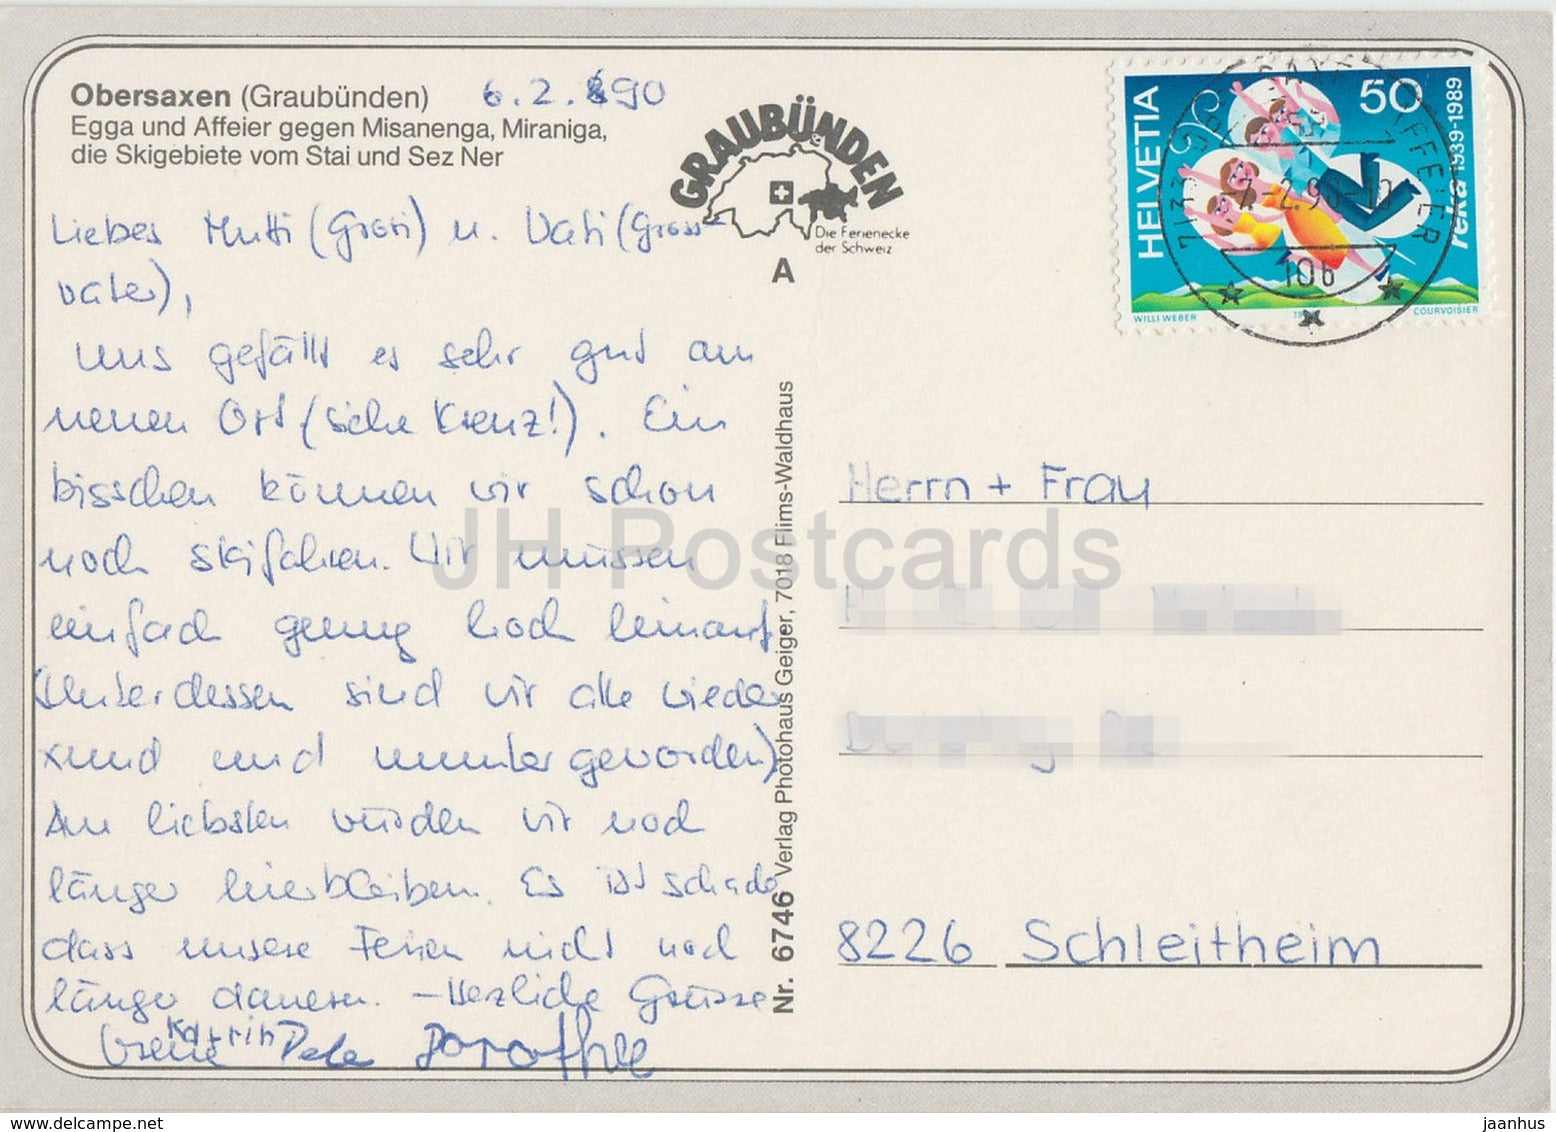 Obersaxen (Graubünden) 6.2.90
Egga und Affeier gegen Misanenga, Miraniga,
die Skigebiete vom Stai und Sez Ner
GRAUBÜNDEN
Die Ferienecke
der Schweiz
A
Liebes Mutti (Grosi) u. Vati (Gross-
vater),
uns gefällt es sehr gut am
neuen Ort (siehe Kreuz!). Ein
bisschen können wir schon
noch skifahren. Wir müssen
einfach genug hoch hinauf
(Unterdessen sind wir alle wieder
xund und munter geworden)
Am liebsten würden wir noch
länger hierbleiben. Es ist schade
dass unsere Ferien nicht noch
länger dauern. – Herzliche Grüsse
Irene Katrin Peter Dorothee
Nr. 6746 Verlag Photohaus Geiger, 7018 Flims-Waldhaus
HELVETIA
50
reka 1939-1989
WILLI WEBER
COURVOISIER
7133
AFFEIER
-7.-2.90-10
106
Herrn + Frau
8226 Schleitheim
JH Postcards
delcampe.net
jaanhus